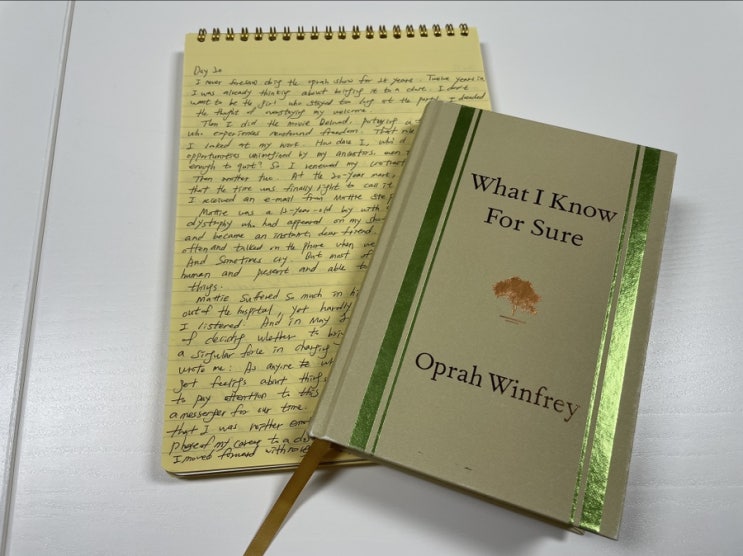 Day 20
I never foresaw doing the oprah show for 25 years. Twelve years in
I was already thinking about bringing it to a close. I didn't
want to be the girl who stayed too long at the party. I dreaded
the thought of overstaying my welcome.
Then I did the movie Beloved, portraying a
who experiences newfound freedom. That role
I looked at my work. How dare I, who'd
opportunities unimagined by my ancestors, even
enough to quit? So I renewed my contract
Then another two. At the 20-year mark,
that the time was finally right to call it
I received an e-mail from Mattie
Mattie was a 12-year-old boy with
dystrophy who had appeared on my
and became an instant, dear friend.
often and talked on the phone when we
And Sometimes cry. But most of
human and present and able to
things.
Mattie Suffered so much in
out of the hospital, yet hardly
I listened. And in May
of deciding whether to
a singular force in changing
wrote me: As anyone
get feelings about things
to pay attention to this
a messenger for our time.
that I was
phase of my career to a
I moved forward with
What I Know
For Sure
Oprah Winfrey